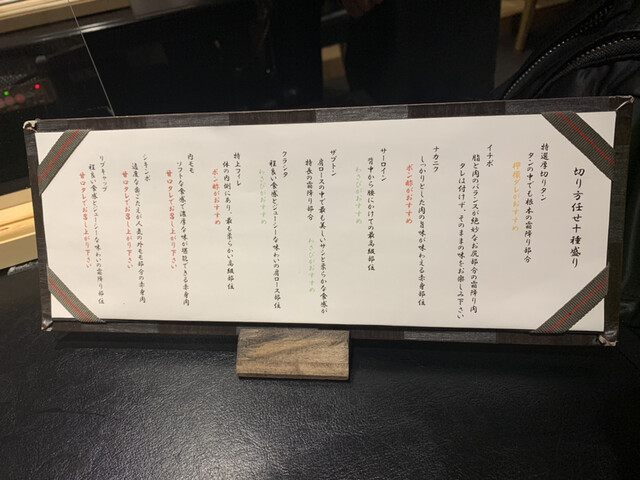 切り方任せ十種盛り
特選厚切りタン
タンの中でも根本の霜降り部分
檸檬タレがおすすめ
イチボ
脂と肉のバランスが絶妙なお尻部分の霜降り肉
タレは付けず、そのままの味をお楽しみ下さい
ナカニク
しっかりとした肉の旨味が味わえる赤身部位
ポン酢がおすすめ
サーロイン
背中から腰にかけての最高級部位
わさびがおすすめ
ザブトン
肩ロースの中で最も美しいサシと柔らかな食感が
特長の霜降り部分
わさびがおすすめ
フランク
程良い食感とジューシーな味わいの肩ロース部位
わさびがおすすめ
特上フィレ
体の内側にあり、最も柔らかい高級部位
ポン酢がおすすめ
内モモ
ソフトな食感で濃厚な味が堪能できる赤身肉
甘口タレでお召し上がり下さい
シキンボ
適度な歯ごたえが人気の外モモ部分の赤身肉
甘口タレでお召し上がり下さい
リブキャップ
程良い食感とジューシーな味わいの霜降り部位
甘口タレでお召し上がり下さい